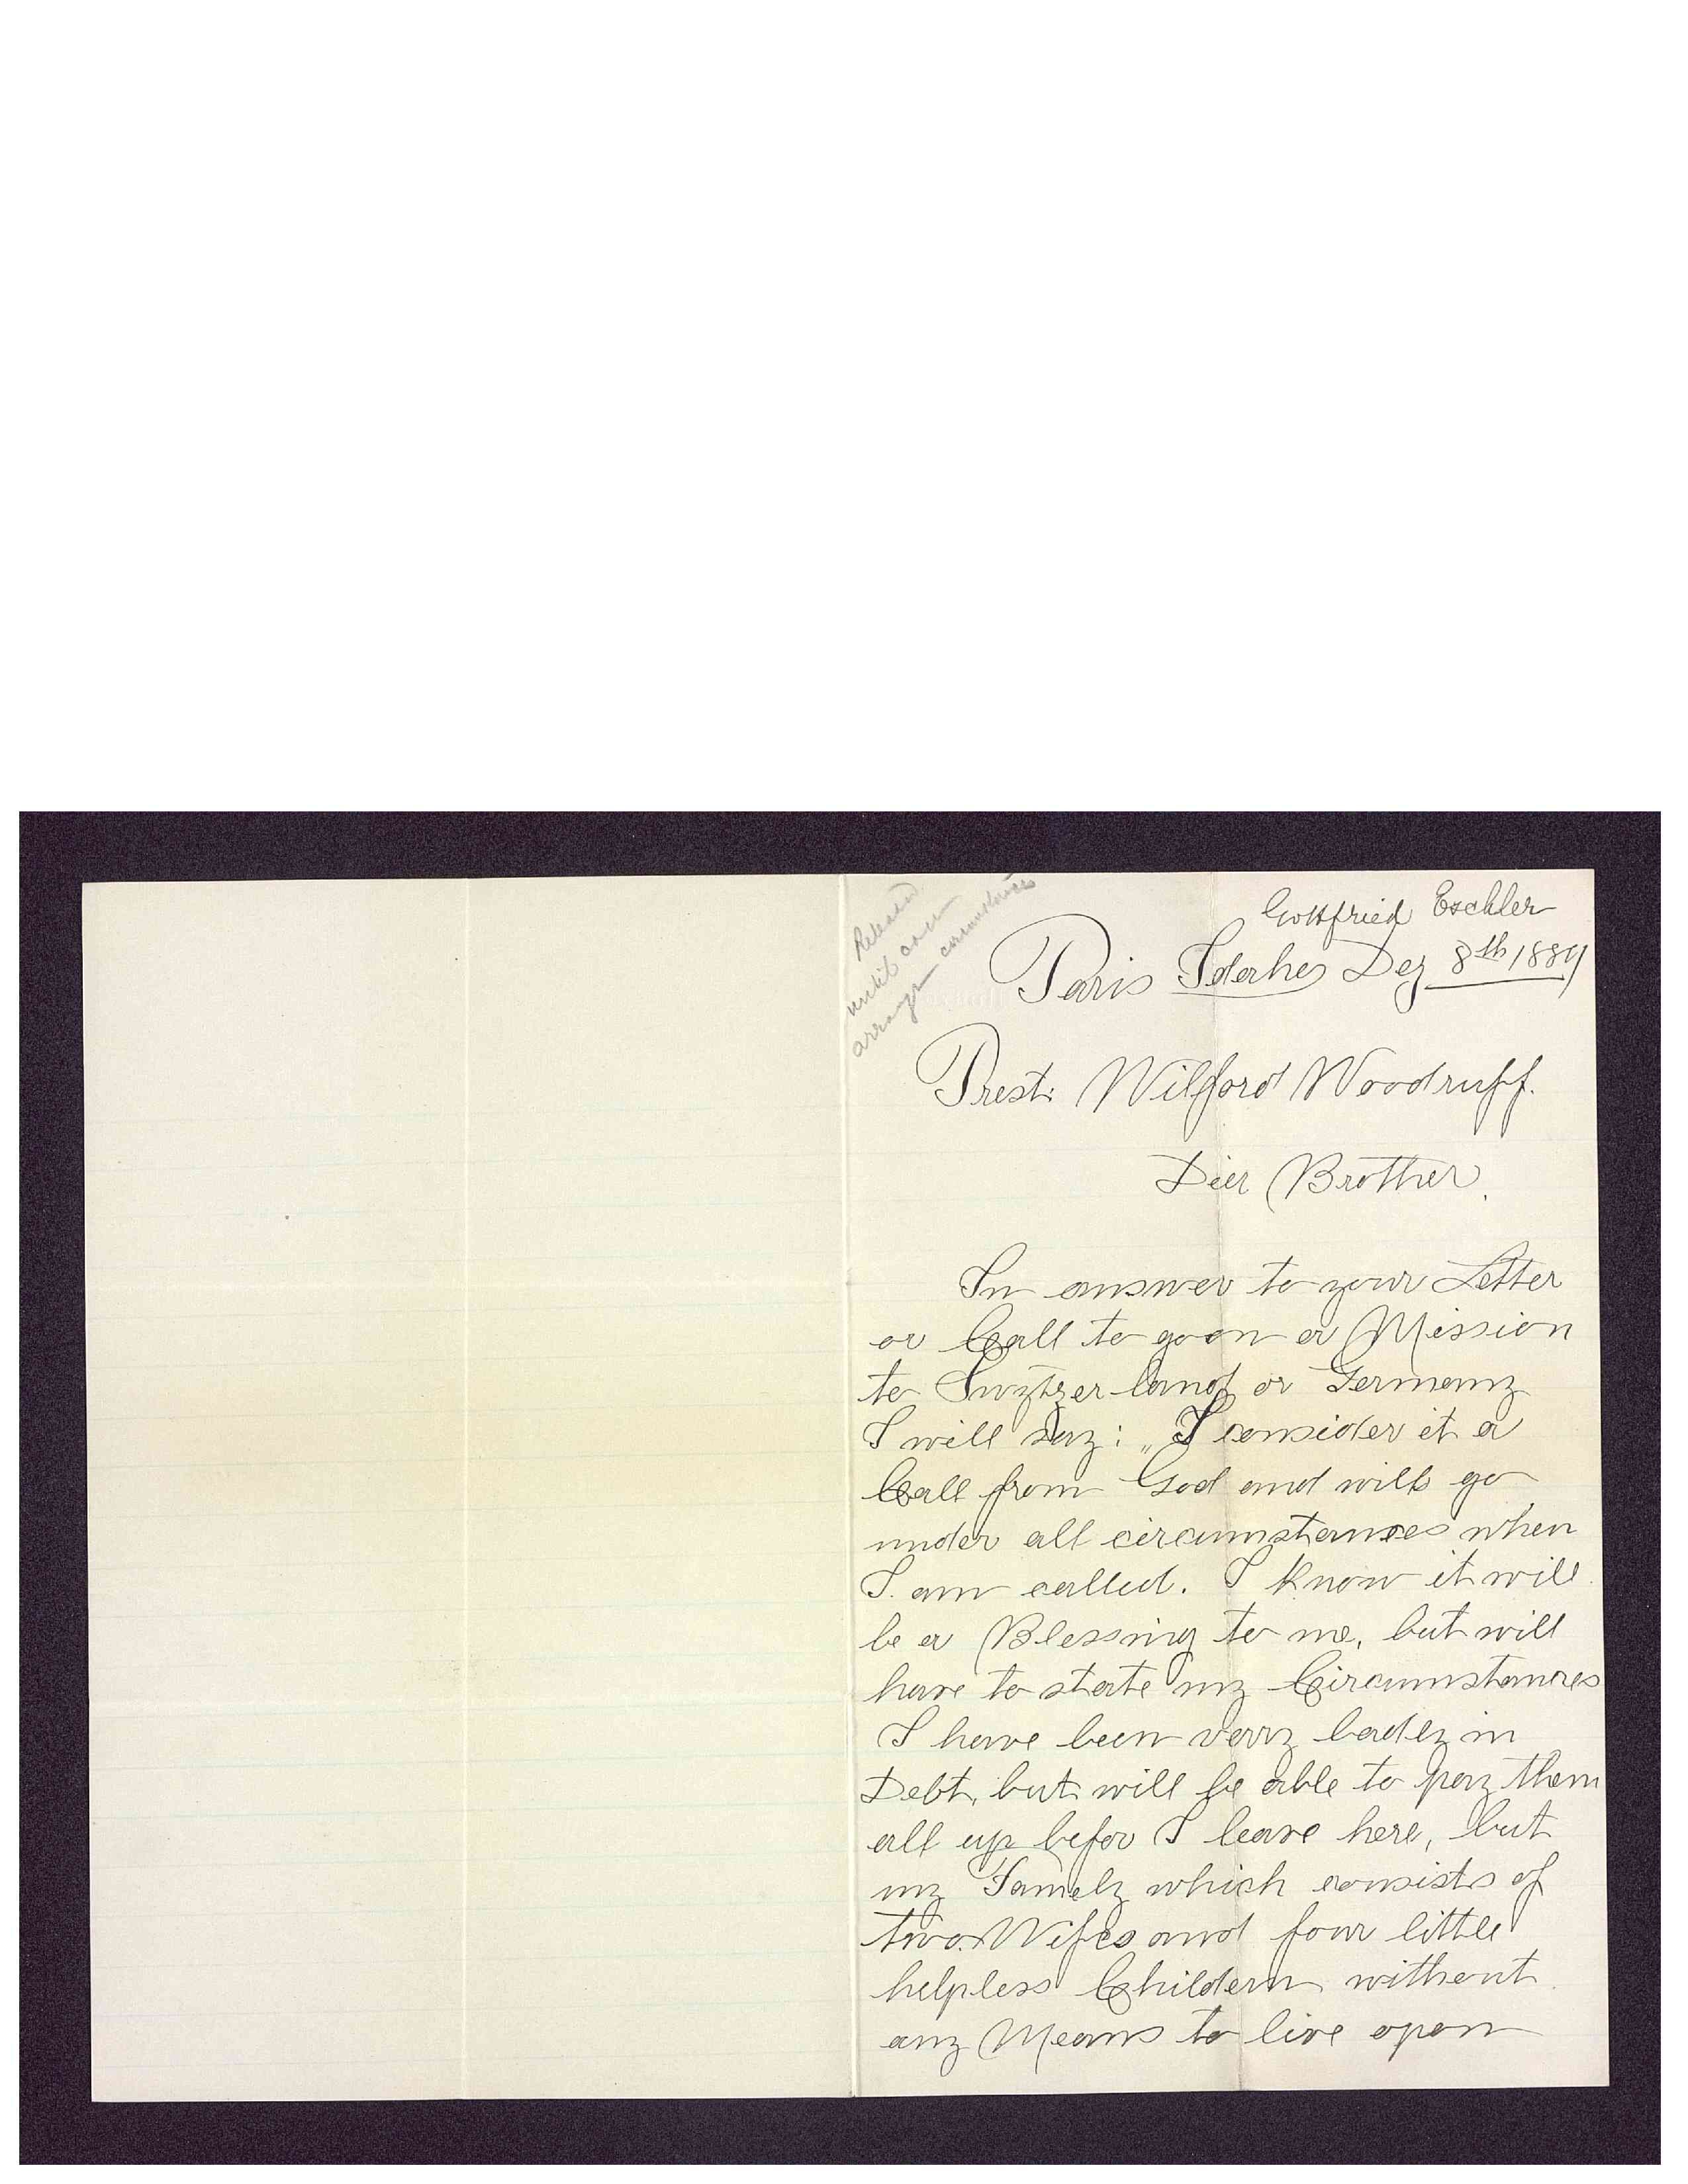 Released
until can
arrange circumstances
Gottfried Eschler
Paris Idaho Dez 8th 1889
Prest. Wilford Woodruff.
Dier Brother.
In answer to your Letter
or Call to go on a Mission
to Swytzerland or Germany
I will say: „I consider it a
Call from God and will go
under all circumstances when
I am called. I know it will
be a Blessing to me, but will
have to state my Circumstances
I have been verry badly in
Debt, but will be able to pay them
all up befor I leave here, but
my Famely which consists of
two Wifes and four little
helpless Childern without
any Means to live opon